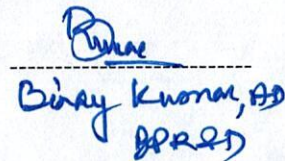 Binay Kumar, AD
BPR&D